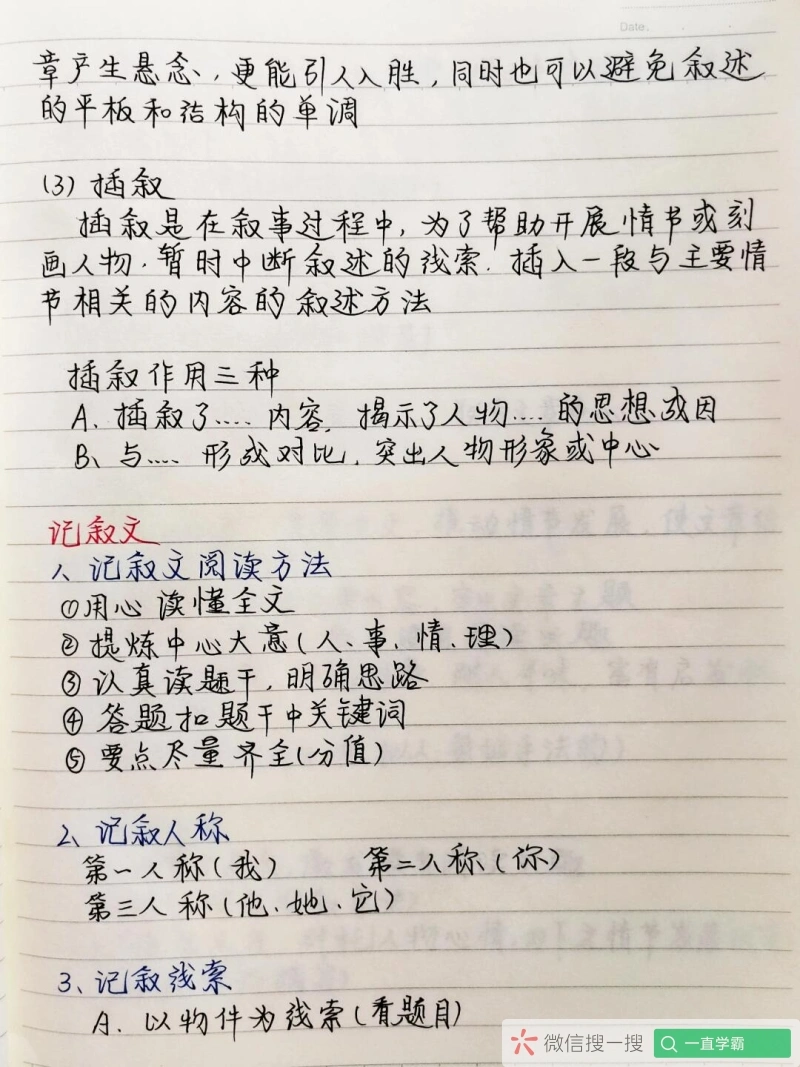 Date.
章产生悬念、,更能引人入胜,同时也可以避免叙述
的平板和结构的单调
(3) 插叙
插叙是在叙事过程中,为了帮助开展情节或刻
画人物.暂时中断叙述的线索.插入一段与主要情
节相关的内容的叙述方法
插叙作用三种
A. 插叙了.... 内容, 揭示了人物.... 的思想成因
B、与.... 形成对比,突出人物形象或中心
记叙文
1、记叙文阅读方法
①用心读懂全文
②提炼中心大意(人、事、情、理)
③认真读题干,明确思路
④答题扣题干中关键词
⑤要点尽量齐全(分值)
2、记叙人称
第一人称(我) 第二人称(你)
第三人称(他、她、它)
3、记叙线索
A. 以物件为线索(看题目)
微信搜一搜 一直学霸